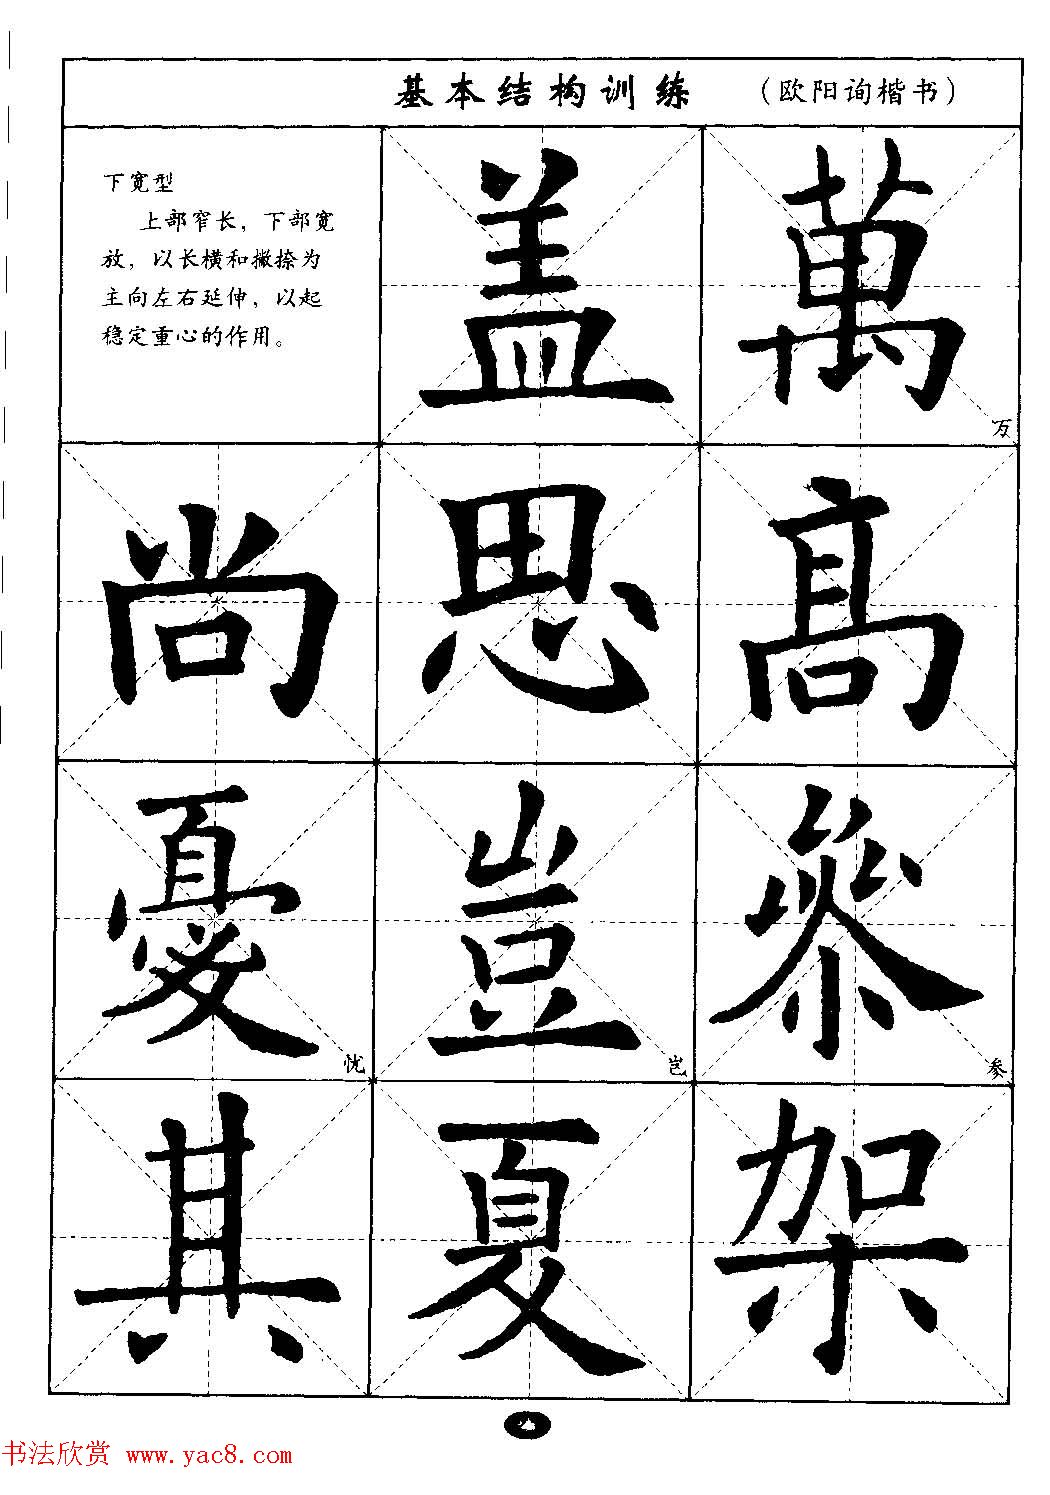 基本结构训练 （欧阳询楷书）
下宽型
上部窄长，下部宽
放，以长横和撇捺为
主向左右延伸，以起
稳定重心的作用。
盖 萬 万
尚 思 高
憂 忧 豈 岂 叅 参
其 夏 架
书法欣赏 www.yac8.com